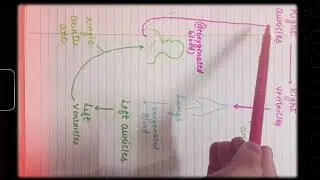 Right auricles → Right ventricles
(deoxygenated
blood)
Lungs
oxygenated
blood
Left auricles
left
ventricles